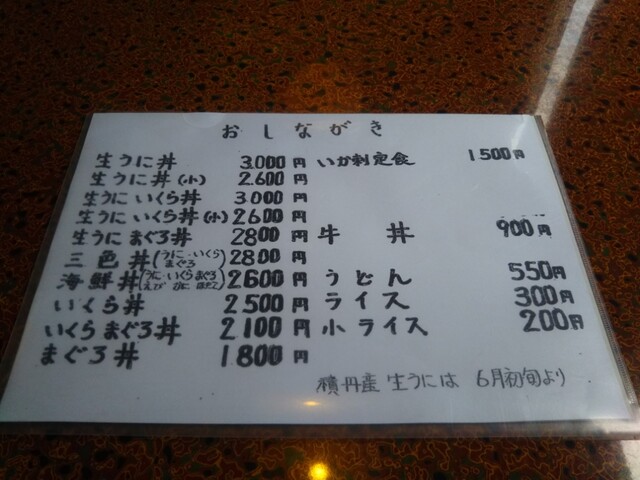 おしながき
生うに丼 3.000円
生うに丼(小) 2.600円
生うに いくら丼 3.000円
生うに いくら丼(小) 2600円
生うに まぐろ丼 2800円
三色丼(うに・いくら まぐろ) 2800円
海鮮丼(うに・いくら まぐろ えび かに ほたて) 2600円
いくら丼 2500円
いくら まぐろ丼 2100円
まぐろ丼 1800円
いか刺定食 1500円
牛丼 900円
うどん 550円
ライス 300円
小ライス 200円
積丹産 生うには 6月初旬より